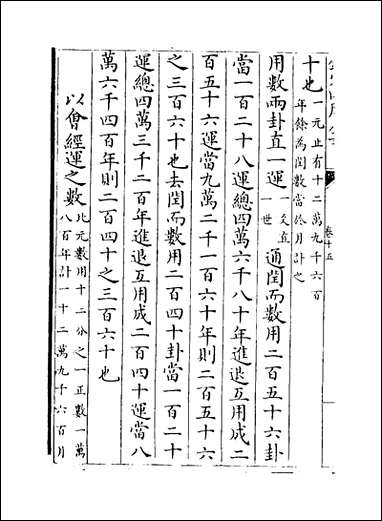 卷十五
十也一元止有十二萬九千六百
年餘為閏數當於月計之
用數兩卦直一運一爻直
一世通閏而數用二百五十六卦
當一百二十八運總四萬六千八十年進退互用成二
百五十六運當九萬二千一百六十年則二百五十六
之三百六十也去閏而數用二百四十卦當一百二十
運總四萬三千二百年進退互用成二百四十運當八
萬六千四百年則二百四十之三百六十也
以會經運之數此元數用十二分之一正數一萬
八百年計一十二萬九千六百月